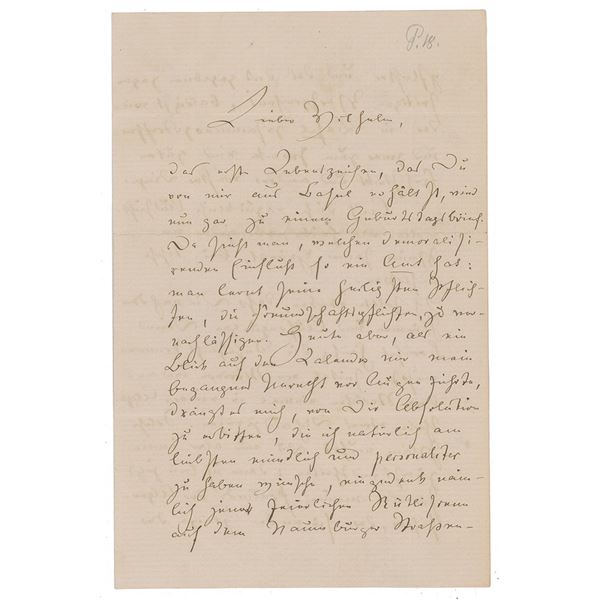 P. 18.
Lieber Wilhelm,
das erste Lebenszeichen, das Du
von mir aus Basel erhältst, wird
nun gar zu einem Geburtstagsbrief.
Da sieht man, welchen demoralisi-
renden Einfluß so ein Amt hat:
man lernt seine heiligsten Pflich-
ten, die Freundschaftspflichten, zu ver-
nachlässigen. Heute aber, als ein
Blick auf den Kalender mir mein
begangnes Unrecht vor Augen führte,
drängt es mich, von Dir Absolution
zu erbitten, die ich natürlich am
liebsten mündlich und personaliter
zu haben wünsche, eingedenk näm-
lich jener feierlichen Rütliscene
auf dem Naumburger Strassen-